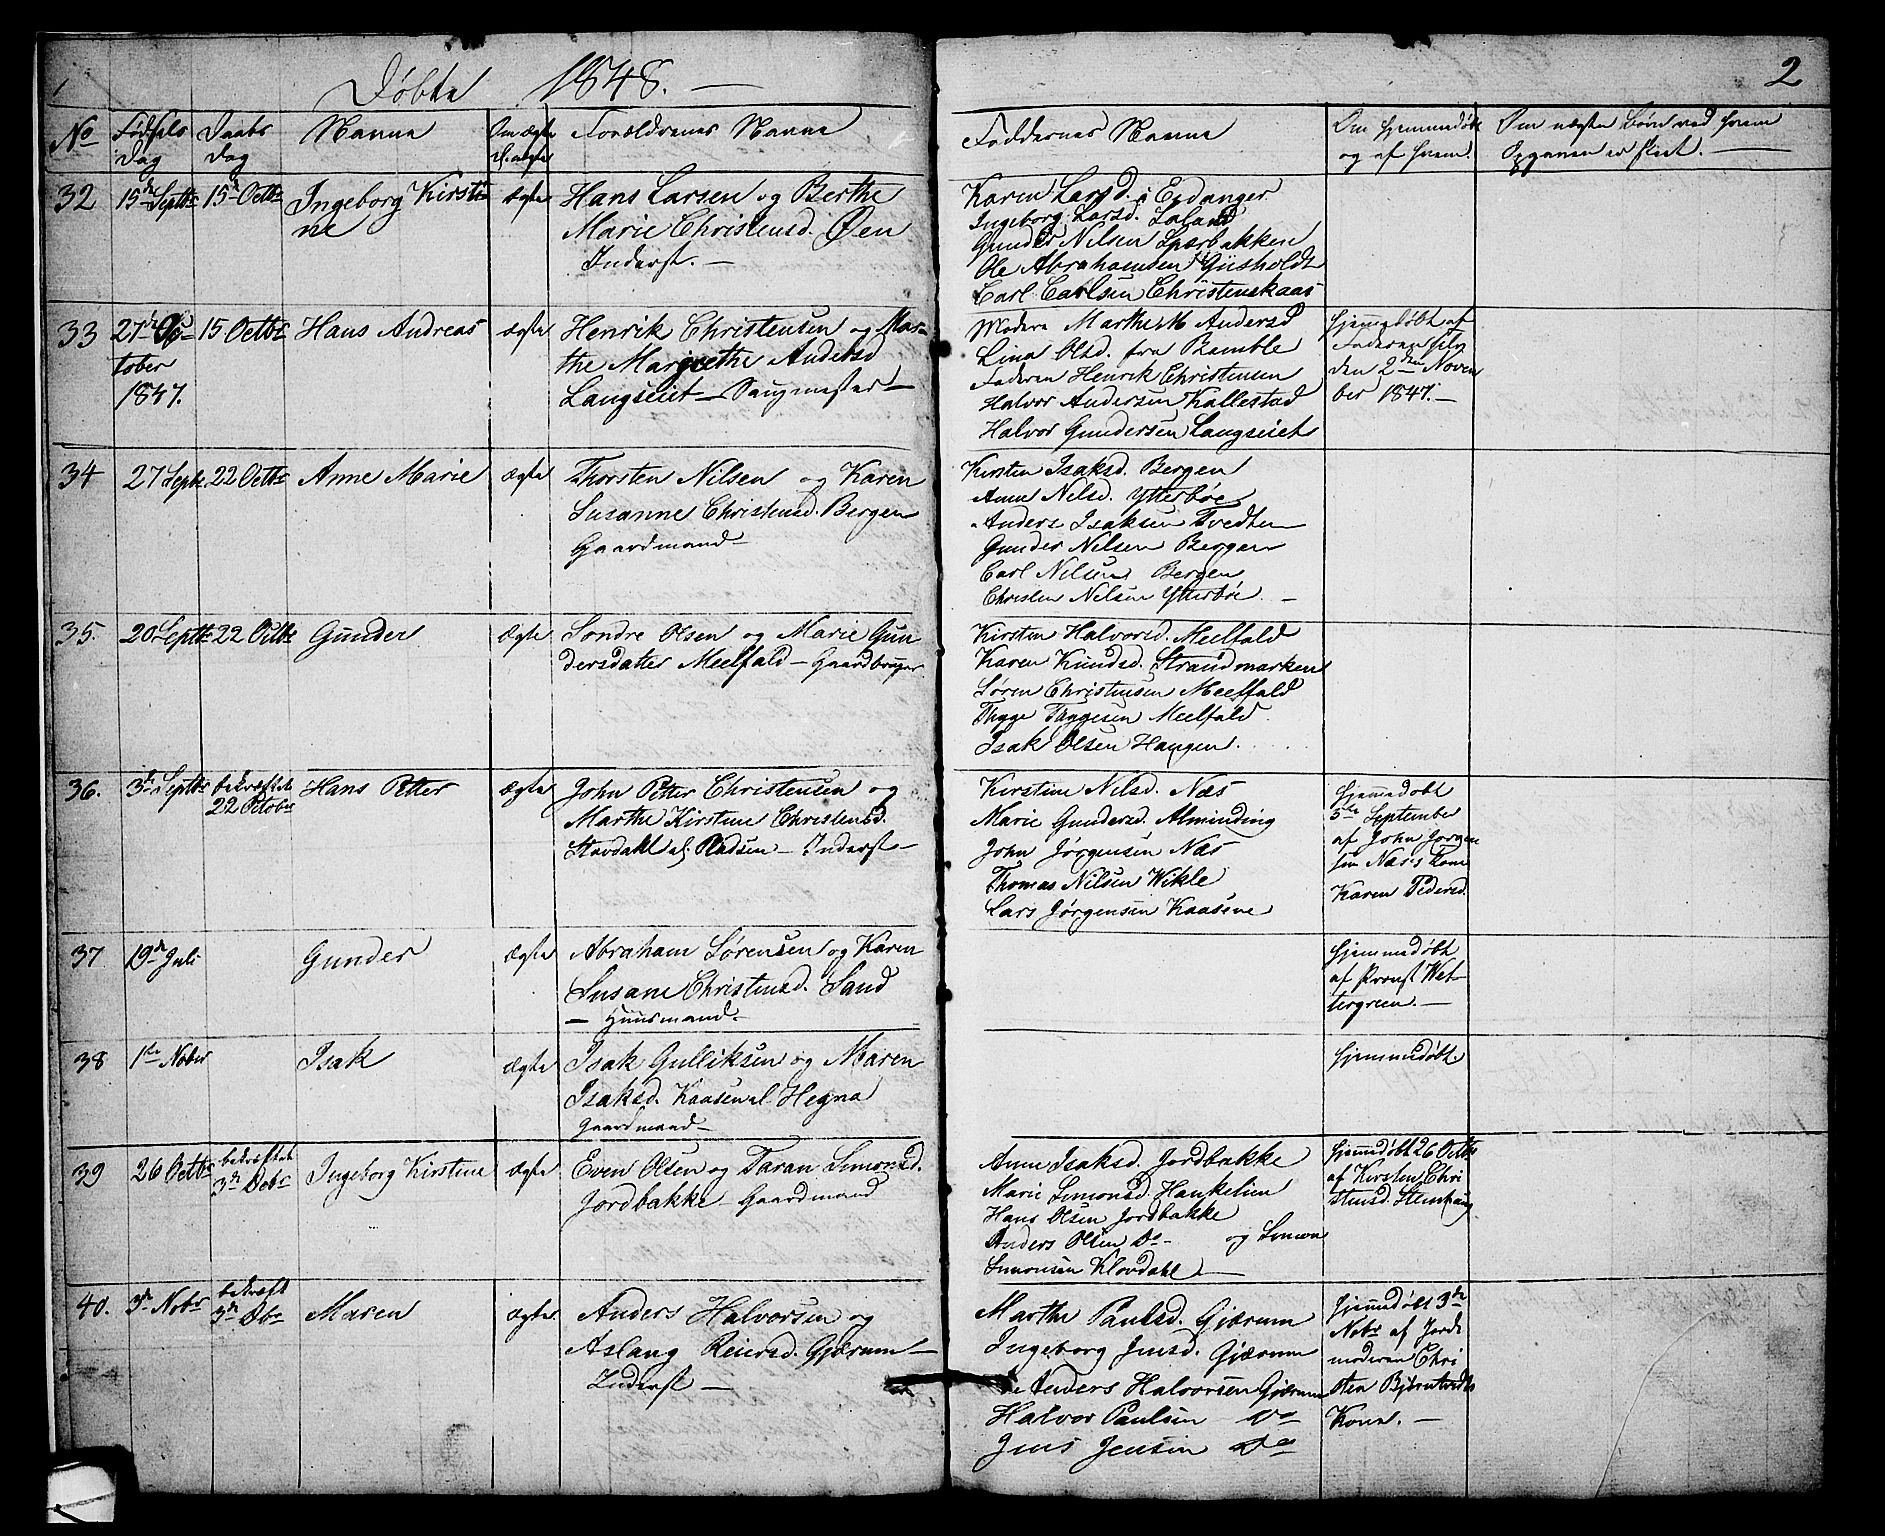 Døbte 1848. —
2
No
Fødsels Dag
Daabs Dag
Navne
Om ægte el. uægte
Forældrenes Navne
Faddernes Navne
Om hjemmedøbt og af hvem.
Om uægte Børn ved hvem Opgaven er skeet. —
32
15de Septbr
15de Octbr
Ingeborg Kirsti-
ne
ægte
Hans Larsen og Berthe
Marie Christensd. Øen
Inderst. —
Karen Larsd. i Eidanger
Ingeborg Larsd. Laland
Gunder Nilsen
Ole Abrahamsen Giisholdt
Carl Carlsen Christenskaas
33
27de Oc-
tober
1847.
15 Octbr
Hans Andreas
ægte
Henrik Christensen og Mar-
the Margrethe Andersd
Langseiet — Saugmester —
Modern Marthe M Andersd
Lina Olsd. fra Bamble
Faderen Henrik Christensen
Halvor Andersen Kallestad
Halvor Gundersen Langseiet
Hjemmedøbt af
Faderen selv
den 2den Novem
ber 1847. —
34
27 Septr.
22 Octbr
Anne Marie
ægte
Thorsten Nilsen og Karen
Susanne Christensd. Bergen
Gaardmand —
Kirsten Isaksd. Bergen
Anne Nilsd. Ytterbøe
Anders Isaksen Tvedten
Gunder Nilsen Bergen
Carl Nilsen Bergen
Christen Nilsen Ytterbøe. —
35.
20 Septbr
22 Octbr
Gunder
ægte
Sondre Olsen og Marie Gun
dersdatter Meelfald — Gaardbruger
Kirsten Halvorsd. Meelfald
Karen Knudsd. Strandmarken
Søren Christensen Meelfald
Thygge Thyggesen Meelfald.
Isak Olsen Haugen.
36.
3de Septbr
bekræftet
22 October
Hans Petter
ægte
John Petter Christensen og
Marthe Kirstine Christensd.
Stavdahl el. Pladsen — Inderst —
Kirstine Nilsd. Næs
Marie Gundersd. Alminding
John Jørgensen Næs
Thomas Nilsen Wikle
Lars Jørgensen Kaasene
Hjemmedøbt
5te September
af John Jørgen
sen Næs's Kone
Karen Pedersd.
37
19de Juli
Gunder
ægte
Abraham Sørensen og Karen
Susane Christensd. Sand
— Huusmand —
Hjemmedøbt
af Provst Wet-
tergreen. —
38
1ste Nobr
Isak
ægte
Isak Gulliksen og Maren
Isaksd. Kaasen el Hegna
Gaardmand —
Hjemmedøbt.
39
26 Octbr
bekræftet
3de Debr
Ingeborg Kirstine
ægte
Even Olsen og Taran Simonsd.
Jordbakke — Gaardmand
Anne Isaksd. Jordbakke
Marie Simonsd. Haukelien
Hans Olsen Jordbakke
Anders Olsen Do — og Simon
Simonsen Klovdahl —
Hjemmedøbt 26 Octbr
af Kirsten Chri
stensd. Steenhaug
40.
3de Nobr
bekræft
3de Dbr
Maren
ægte
Anders Halvorsen og
Aslaug Reiersd. Gjærum —
Inderst —
Marthe Paulsd. Gjærum
Ingeborg Jensd. Gjærum
Anders Halvorsen Gjærum
Halvor Paulsen Do
Jens Jensen Do
Hjemmedøbt 3de
Nobr af Jorde
moderen Chri
sten Bjørntvedts
Kone. —